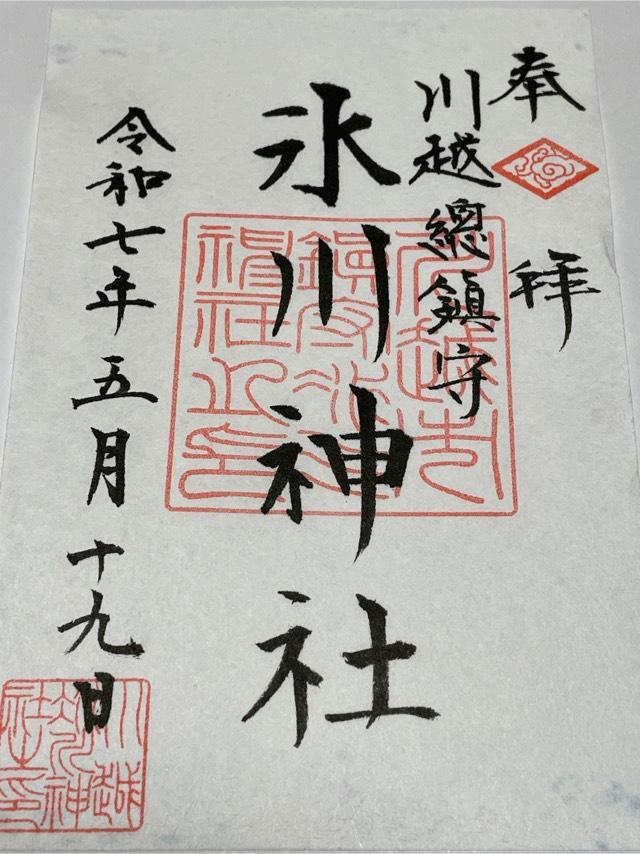 奉拝
川越總鎮守
氷川神社
令和七年五月十九日